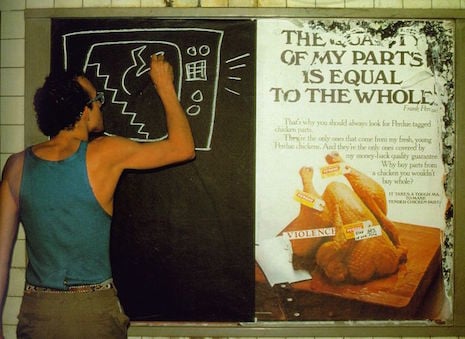 THE QUALITY
OF MY PARTS
IS EQUAL
TO THE WHOLE.
Frank Perdue
That's why you should always look for Perdue tagged
chicken parts.
They're the only ones that come from my fresh, young
Perdue chickens. And they're the only ones covered by
my money-back quality guarantee.
Why buy parts from
a chicken you wouldn't
buy whole?
IT TAKES A TOUGH MAN
TO MAKE
TENDER CHICKEN PARTS
VIOLENCE